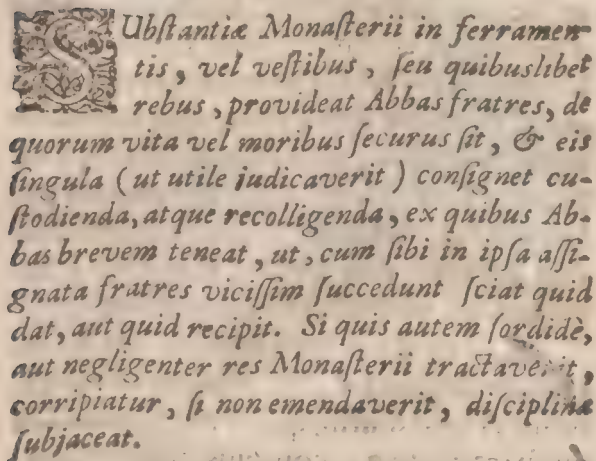 SUbſtantiæ Monaſterii in ferramen-
tis, vel veſtibus, ſeu quibuslibet
rebus, provideat Abbas fratres, de
quorum vita vel moribus ſecurus ſit, & eis
ſingula (ut utile judicaverit) conſignet cu-
ſtodienda, atque recolligenda, ex quibus Ab-
bas brevem teneat, ut, cum ſibi in ipſa aſſi-
gnata fratres viciſſim ſuccedunt ſciat quid
dat, aut quid recipit. Si quis autem ſordidè,
aut negligenter res Monaſterii tractaverit,
corripiatur, ſi non emendaverit, diſciplinæ
ſubjaceat.